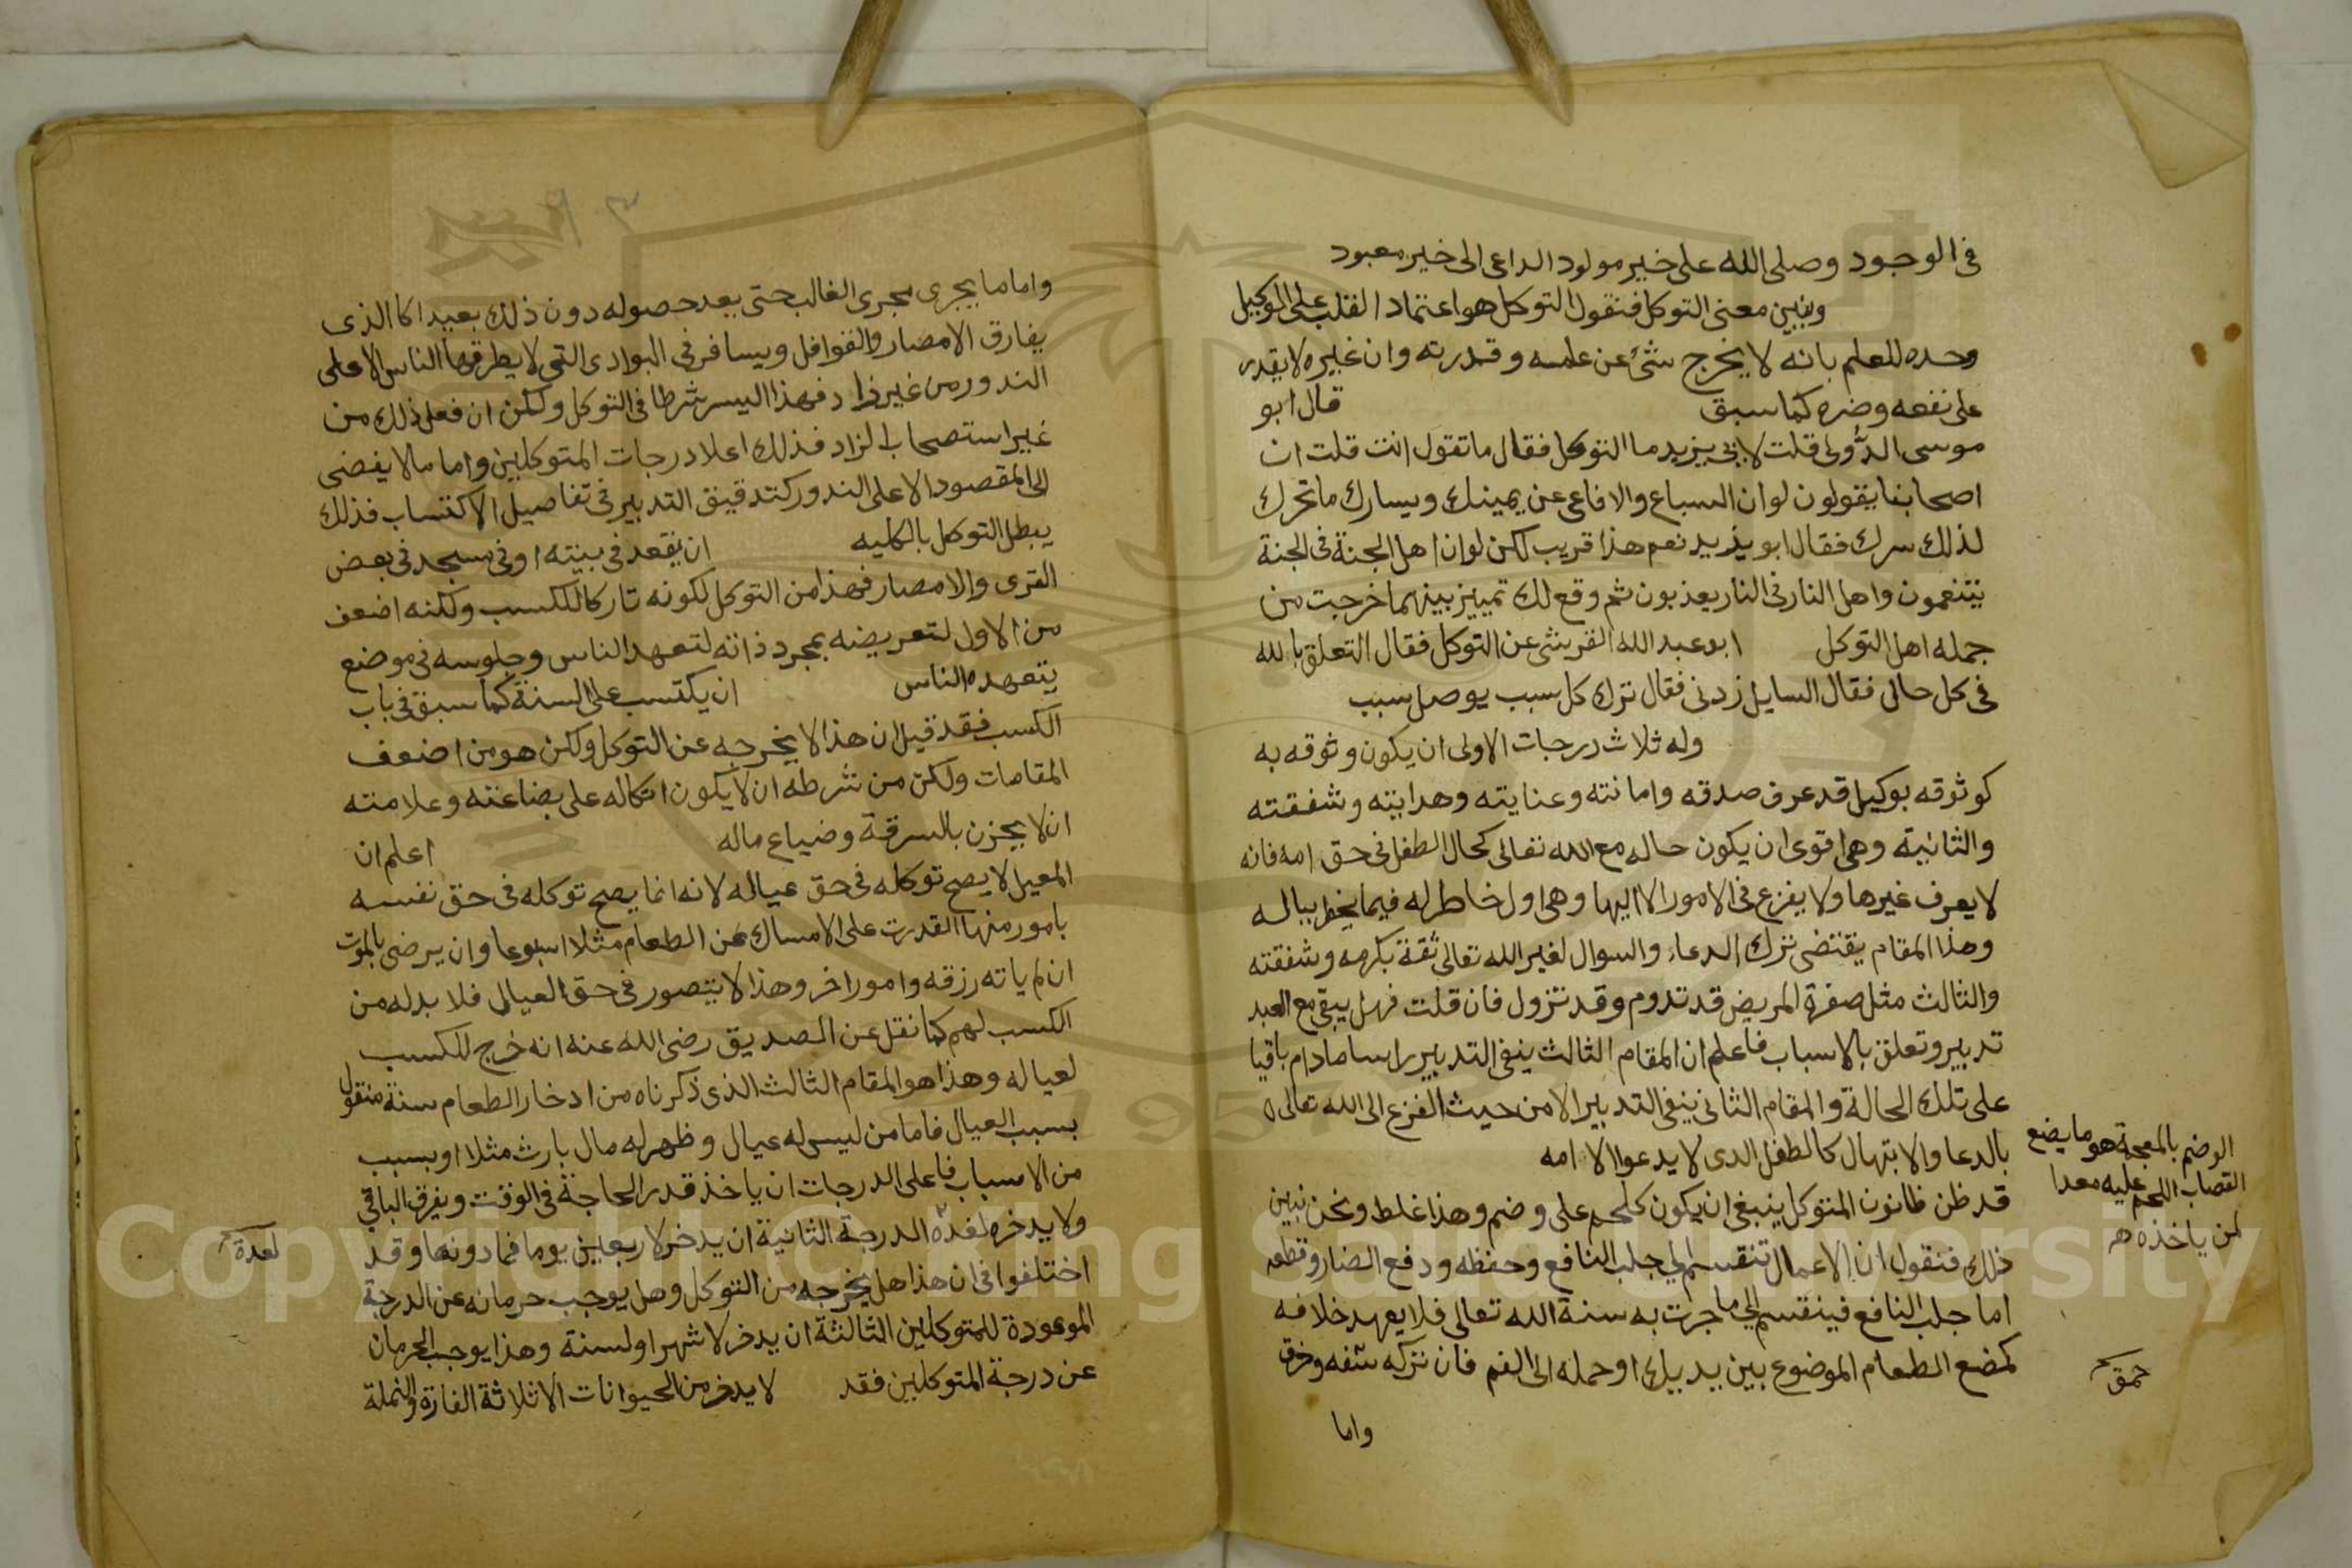 في الوجود وصلى الله على خير مولود الداعى الى خير معبود
ونبين معنى التوكل فنقول التوكل هو اعتماد القلب على الوكيل
وحده للعلم بانه لا يخرج شئ عن علمه وقدرته وان غيره لا يقدر
على نفعه وضره كما سبق قال ابو
موسى الدؤلى قلت لابى يزيد ما التوكل فقال ما تقول انت قلت ان
اصحابنا يقولون لو ان السباع والافاعى عن يمينك ويسارك ما تحرك
لذلك سرك فقال ابو يزيد نعم هذا قريب لكن لو ان اهل الجنة فى الجنة
يتنعمون واهل النار فى النار يعذبون ثم وقع لك تمييز بينهما خرجت من
جمله اهل التوكل ابو عبد الله القرشى عن التوكل فقال التعلق بالله
فى كل حال فقال السايل زدنى فقال ترك كل سبب يوصل سبب
وله ثلاث درجات الاولى ان يكون وثوقه به
كوثوقه بوكيل قد عرف صدقه وامانته وعنايته وهدايته وشفقته
والثانية وهى اقوى ان يكون حاله مع الله تعالى كحال الطفل فى حق امه فانه
لا يعرف غيرها ولا يفزع فى الامور الا اليها وهى اول خاطر له فيما يخطر بباله
وهذا المقام يقتضى ترك الدعاء والسوال لغير الله تعالى ثقة بكرمه وشفقته
والثالث مثل صفرة المريض قد تدوم وقد تزول فان قلت فهل يبقى مع العبد
تدبير وتعلق بالاسباب فاعلم ان المقام الثالث ينفى التدبير راسا مادام باقيا
على تلك الحالة والمقام الثانى ينفى التدبير الا من حيث الفزع الى الله تعالى
بالدعا والابتهال كالطفل الدى لا يدعوا الا امه
قد ظن ظانون المتوكل ينبغى ان يكون كلحم على وضم وهذا غلط ونحن نبين
ذلك فنقول ان الاعمال تنقسم الى جلب النافع وحفظه ودفع الضار وقطعه
اما جلب النافع فينقسم الى ما جرت به سنة الله تعالى فلا يعهد خلافه
كمضع الطعام الموضوع بين يديك او حمله الى الفم فان تركه سفه وخرق
واما
الوضم بالمعجمة هو ما يضع
القصاب اللحم عليه معدا
لمن ياخذه
حمق
واما ما يجرى مجرى الغالب حتى يعد حصوله دون ذلك بعيدا كالذى
يفارق الامصار والقوافل ويسافر فى البوادى التى لا يطرقها الناس الا على
الندور من غير زاد فهذا ليس شرطا فى التوكل ولكن ان فعل ذلك من
غير استصحاب الزاد فذلك اعلا درجات المتوكلين واما ما لا يفضى
الى المقصود الا على الندور كتدقيق التدبير فى تفاصيل الاكتساب فذلك
يبطل التوكل بالكليه ان يقعد فى بيته او فى مسجد فى بعض
القرى والامصار فهذا من التوكل لكونه تاركا للكسب ولكنه اضعف
من الاول لتعريضه بمجرد ذاته لتعهد الناس وجلوسه فى موضع
يتعهده الناس ان يكتسب على السنة كما سبق فى باب
الكسب فقد قيل ان هذا لا يخرجه عن التوكل ولكن هو من اضعف
المقامات ولكن من شرطه ان لا يكون اتكاله على بضاعته وعلامته
ان لا يحزن بالسرقة وضياع ماله اعلم ان
المعيل لا يصح توكله فى حق عياله لانه انما يصح توكله فى حق نفسه
بامور منها القدرت على الامساك عن الطعام مثلا اسبوعا وان يرضى بالموت
ان لم ياته رزقه وامور اخر وهذا لا يتصور فى حق العيال فلا بد له من
الكسب لهم كما نقل عن الصديق رضى الله عنه انه خرج للكسب
لعياله وهذا هو المقام الثالث الذى ذكرناه من ادخار الطعام سنة منقول
بسبب العيال فاما من ليس له عيال وظهر له مال بارث مثلا او بسبب
من الاسباب فاعلى الدرجات ان ياخذ قدر الحاجة فى الوقت ويفرق الباقى
ولا يدخره لغده الدرجة الثانية ان يدخر لاربعين يوما فما دونها وقد
اختلفوا فى ان هذا هل يخرجه من التوكل وهل يوجب حرمانه عن الدرجة
الموعودة للمتوكلين الثالثة ان يدخر لاشهر او لسنة وهذا يوجب الحرمان
عن درجة المتوكلين فقد لا يدخر من الحيوانات الا ثلاثة الفارة والنملة
لعدة
Copyright © King Saud University
1957